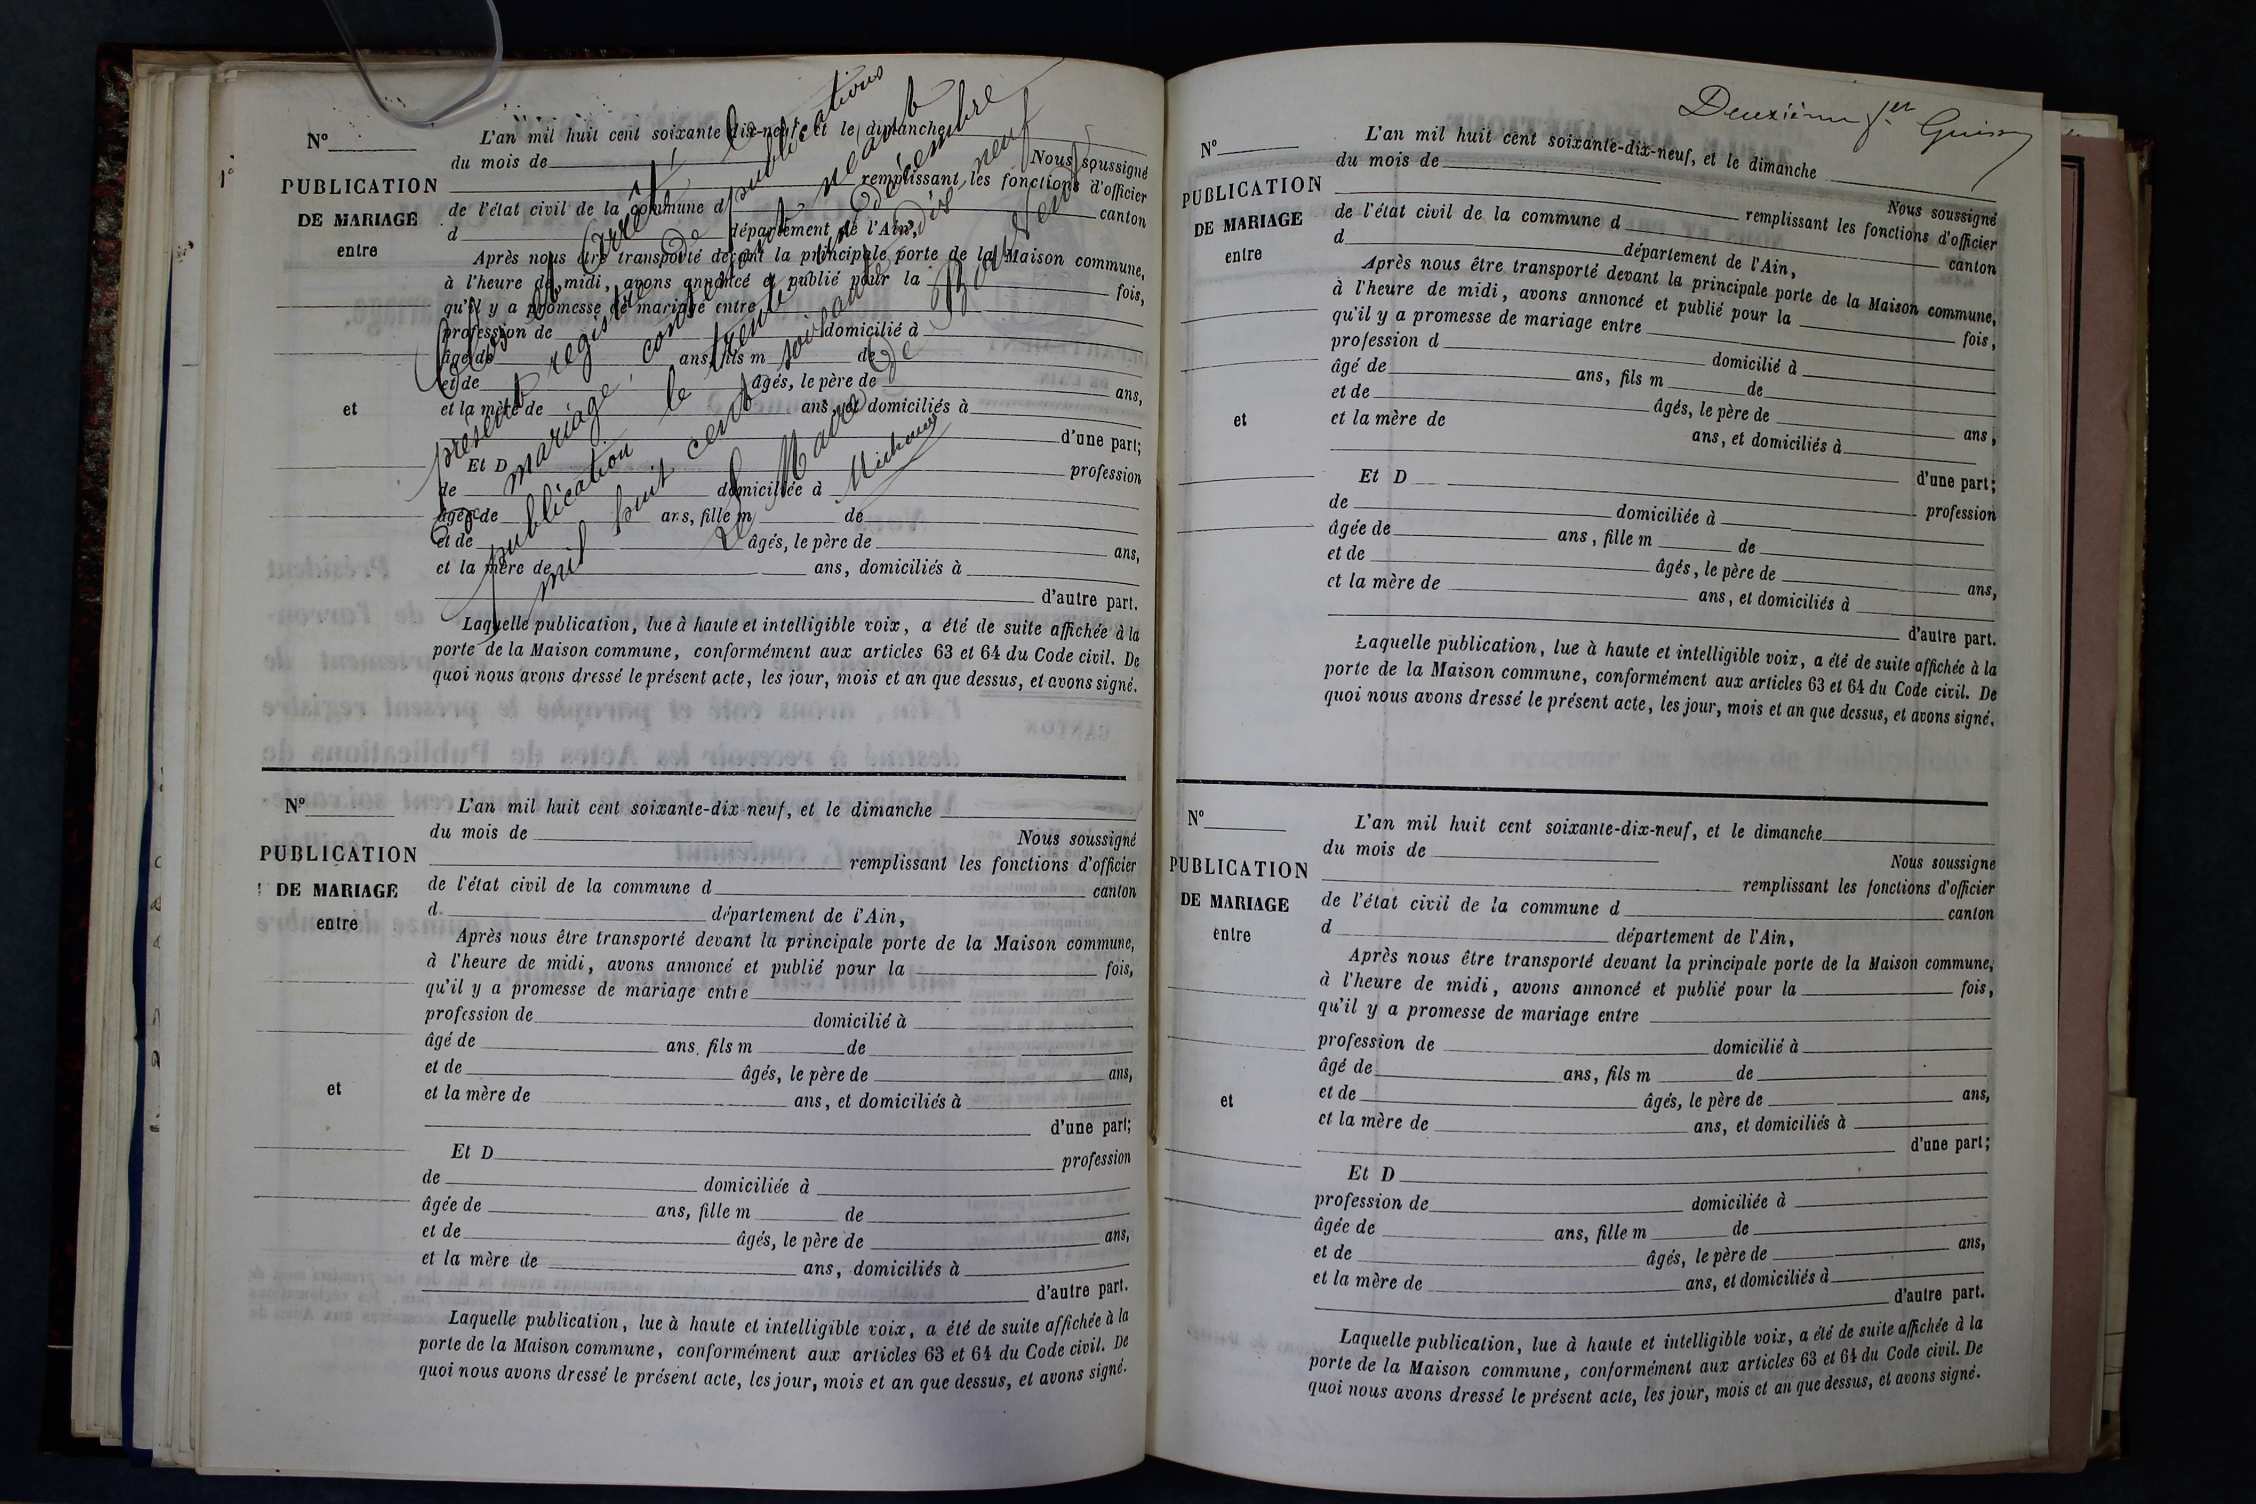 1°
N°
PUBLICATION
DE MARIAGE
entre
et
L'an mil huit cent soixante dix-neuf, et le dimanche
du mois de
Nous soussigné
remplissant les fonctions d'officier
de l'état civil de la commune d
canton
d département de l'Ain,
Après nous être transporté devant la principale porte de la Maison commune,
à l'heure de midi, avons annoncé et publié pour la fois,
qu'il y a promesse de mariage entre
profession de domicilié à
âgé de ans, fils m de
et de âgés, le père de ans,
et la mère de ans, et domiciliés à
d'une part;
Et D profession
de domiciliée à
âgée de ans, fille m de
et de âgés, le père de ans,
et la mère de ans, domiciliés à
d'autre part.
Laquelle publication, lue à haute et intelligible voix, a été de suite affichée à la
porte de la Maison commune, conformément aux articles 63 et 64 du Code civil. De
quoi nous avons dressé le présent acte, les jour, mois et an que dessus, et avons signé.
Clos et arrêté le
présent registre de publications
de mariage contenant néant
publication le trente un décembre
mil huit cent soixante dix neuf
Le Maire de
Michaud
N°
PUBLICATION
DE MARIAGE
entre
et
L'an mil huit cent soixante-dix neuf, et le dimanche
du mois de Nous soussigné
remplissant les fonctions d'officier
de l'état civil de la commune d canton
d département de l'Ain,
Après nous être transporté devant la principale porte de la Maison commune,
à l'heure de midi, avons annoncé et publié pour la fois,
qu'il y a promesse de mariage entre
profession de domicilié à
âgé de ans, fils m de
et de âgés, le père de ans,
et la mère de ans, et domiciliés à
d'une part;
Et D profession
de domiciliée à
âgée de ans, fille m de
et de âgés, le père de ans,
et la mère de ans, domiciliés à
d'autre part.
Laquelle publication, lue à haute et intelligible voix, a été de suite affichée à la
porte de la Maison commune, conformément aux articles 63 et 64 du Code civil. De
quoi nous avons dressé le présent acte, les jour, mois et an que dessus, et avons signé.
Deuxième fer
N°
PUBLICATION
DE MARIAGE
entre
et
L'an mil huit cent soixante-dix-neuf, et le dimanche
du mois de
Nous soussigné
remplissant les fonctions d'officier
de l'état civil de la commune d
canton
d département de l'Ain,
Après nous être transporté devant la principale porte de la Maison commune,
à l'heure de midi, avons annoncé et publié pour la fois,
qu'il y a promesse de mariage entre
profession d domicilié à
âgé de ans, fils m de
et de âgés, le père de ans,
et la mère de ans, et domiciliés à
d'une part;
Et D profession
de domiciliée à
âgée de ans, fille m de
et de âgés, le père de ans,
et la mère de ans, et domiciliés à
d'autre part.
Laquelle publication, lue à haute et intelligible voix, a été de suite affichée à la
porte de la Maison commune, conformément aux articles 63 et 64 du Code civil. De
quoi nous avons dressé le présent acte, les jour, mois et an que dessus, et avons signé.
N°
PUBLICATION
DE MARIAGE
entre
et
L'an mil huit cent soixante-dix-neuf, et le dimanche
du mois de Nous soussigné
remplissant les fonctions d'officier
de l'état civil de la commune d canton
d département de l'Ain,
Après nous être transporté devant la principale porte de la Maison commune,
à l'heure de midi, avons annoncé et publié pour la fois,
qu'il y a promesse de mariage entre
profession de domicilié à
âgé de ans, fils m de
et de âgés, le père de ans,
et la mère de ans, et domiciliés à
d'une part;
Et D
profession de domiciliée à
âgée de ans, fille m de
et de âgés, le père de ans,
et la mère de ans, et domiciliés à
d'autre part.
Laquelle publication, lue à haute et intelligible voix, a été de suite affichée à la
porte de la Maison commune, conformément aux articles 63 et 64 du Code civil. De
quoi nous avons dressé le présent acte, les jour, mois et an que dessus, et avons signé.